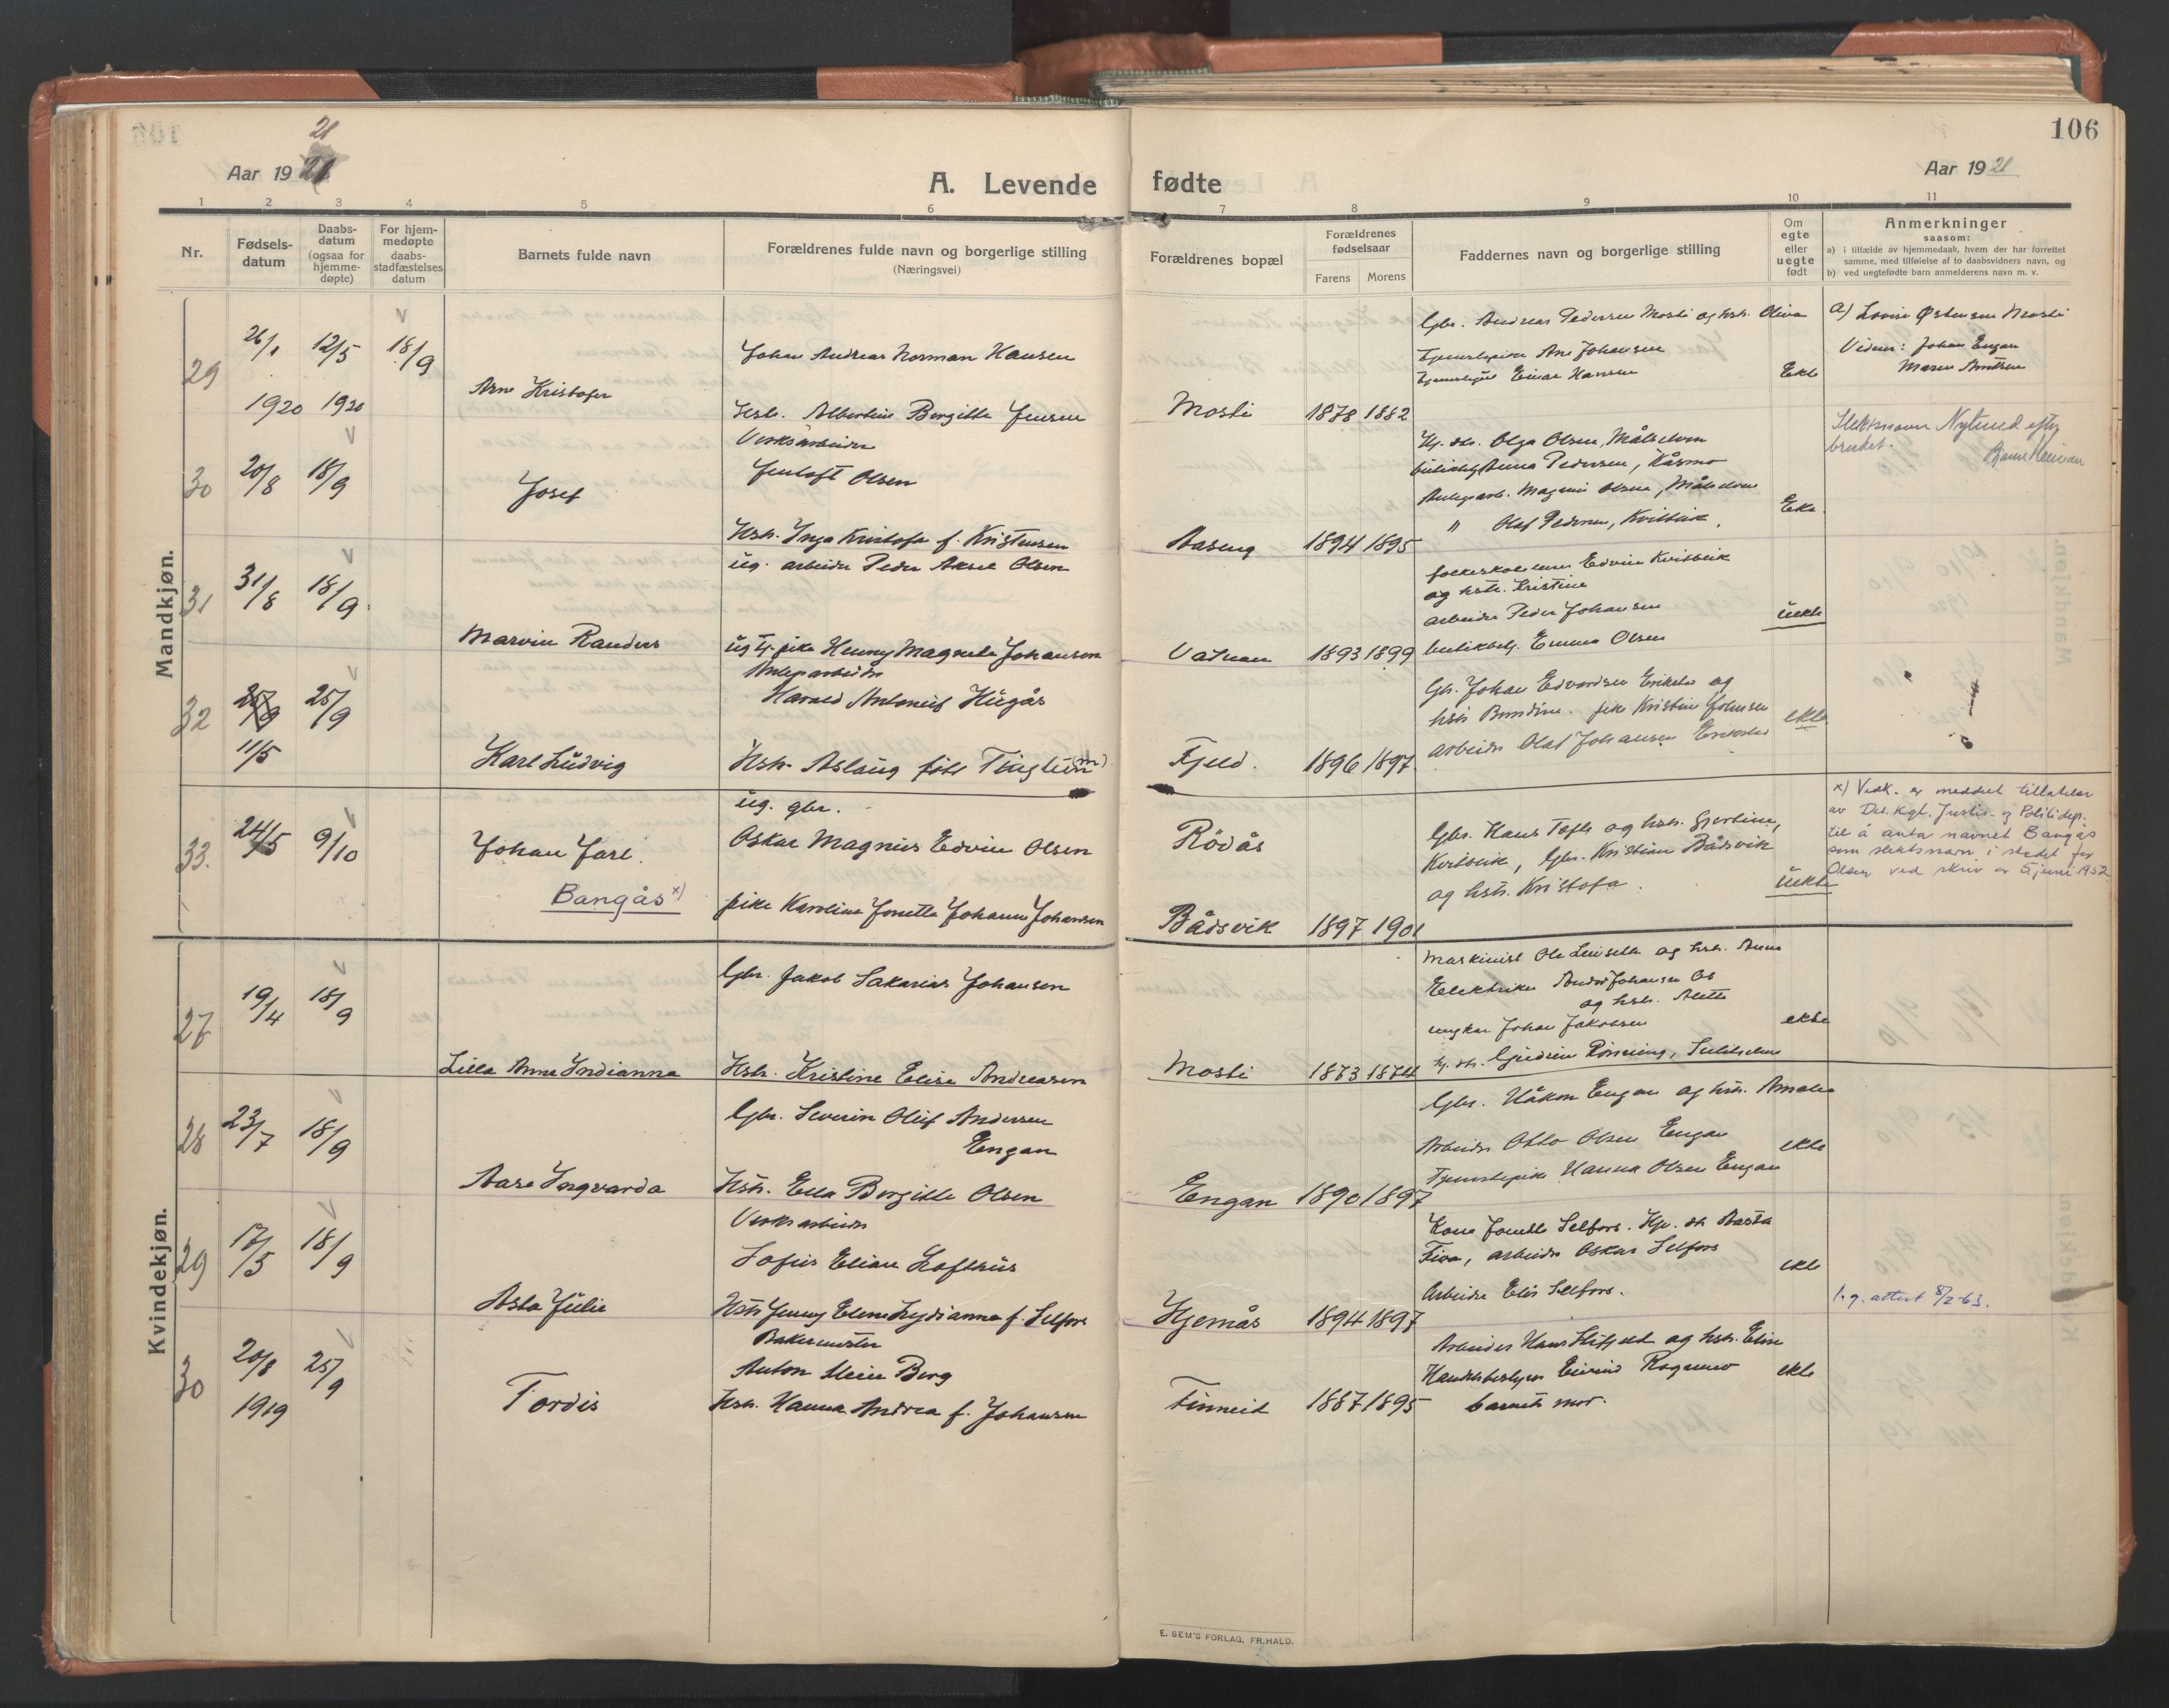 106
21
Aar 1921
A. Levende fødte
Aar 1921
1 2 3 4 5 6 7 8 9 10 11
Nr.
Fødsels-
datum
Daabs-
datum
(ogsaa for
hjemme-
døpte)
For hjem-
medøpte
daabs-
stadfæstelses
datum
Barnets fulde navn
Forældrenes fulde navn og borgerlige stilling
(Næringsvei)
Forældrenes bopæl
Forældrenes
fødselsaar
Farens Morens
Faddernes navn og borgerlige stilling
Om
egte
eller
uegte
født
Anmerkninger
saasom:
a) i tilfælde av hjemmedaab, hvem der har forrettet
samme, med tilføielse af to daabsvidners navn, og
b) ved uegtefødte barn anmelderens navn m. v.
Mandkjøn.
29
26/1 12/5 18/9
1920 1920
Arne Kristofer
Johan Andreas Norman Hansen
Hstr. Albertine Bergitte Jensen
Mosti 1878 1882
Gbr. Andreas Pedersen Mosti og hstr. Oliva
Tjenestepike Ane Johansen
Einar Hansen
Ekte
a) Lovise Østensen Mosti
Vidner: Johan Engan
Maren Arntsen
Slektsnavn Nylund efter
bruket.
30
20/8 18/9
Josef
Verksarbeider
Jentoft Olsen
Hstr. Inga Kristofa f. Kristensen
Aaseng 1894 1895
Olga Olsen, Målselven
Anna Pedersen, Kåsmo
Anlegsarb. Magnus Olsen, Målselven
" Olaf Pedersen, Kvitblik.
Ekte
31
31/8 18/9
Marvin Randers
ug. arbeider Peder Aksel Olsen
ug. tj. pike Henny Magnele Johansen
Vatnan 1893 1899
folkeskolelærer Edvin Kvitblik
og hstr. Kristine
arbeider Peder Johansen
butikbetj. Emma Olsen
uekte
32
25/9 25/9
11/5
Karl Ludvig
Anlegsarbeider
Harald Antonius Hugås
Hstr. Aslaug født Tinghun (m)
Fjeld. 1896 1897.
Gbr. Johan Edvardsen Erikstad og
hstr Bendine. pike Kristine Johnsen
arbeider Olaf Johansen Erikstad
ekte
33.
24/5 9/10
Johan Jarl.
Bangås x)
ug. gbr.
Oskar Magnus Edvin Olsen
pike Karoline Jonette Johanne Johansen
Rödås
Bådsvik 1897 1901
Gbr. Hans Tofte og hstr. Gjertine,
Kvitblik, Gbr. Kristian Bådsvik
og hstr. Kristofa.
uekte
x) Vedk. er meddelt tillatelse
av Det. Kgl. Justis- og Politidep.
til å anta navnet Bangås
som slektsnavn i stedet for
Olsen ved skriv av 5 juni 1952.
Kvindekjøn.
27
19/4 18/9
Lilla Anne Indianna
Gbr. Jakob Sakarias Johansen
Hstr. Kristine Elise Andreasen
Mosti 1873 1874
Maskinist Ole Leiseth og hstr. Anna
Elektriker Andor Johansen Os
og hstr. Alette
ungkar Johan Jakobsen
Gudrun Rønning, Sulitjelma
ekte
28
23/7 18/9
Aase Ingvarda
Gbr. Severin Oluf Andersen
Engan
Hstr. Ella Bergitte Olsen
Engan 1890 1897
Gbr. Håkon Engan og hstr. Amalie
Arbeider Otto Olsen Engan
Tjenestepike Hanna Olsen Engan
ekte
29
17/5 18/9
Asta Julie
Verksarbeider
Sofus Elian Lofthus
Hstr Jenny Elene Lydianna f. Selfors
Hjemås 1894 1897
Kone Jonette Selfors. Hp. dtr Aasta
Fiva, arbeider Oskar Selfors
Arbeider Elis Selfors.
ekte
l.g. attest 8/2-63.
30
20/8 25/9
1919
Tordis
Bakermester
Anton Stein Berg
Hstr. Hanna Andrea f. Johansen
Finneid 1887 1895
Arbeider Hans Slitfjeld og hstr. Elise
Handelsbestyrer Eivind Rognmo
barnets mor.
ekte
E. SEM'S FORLAG, FR.HALD.